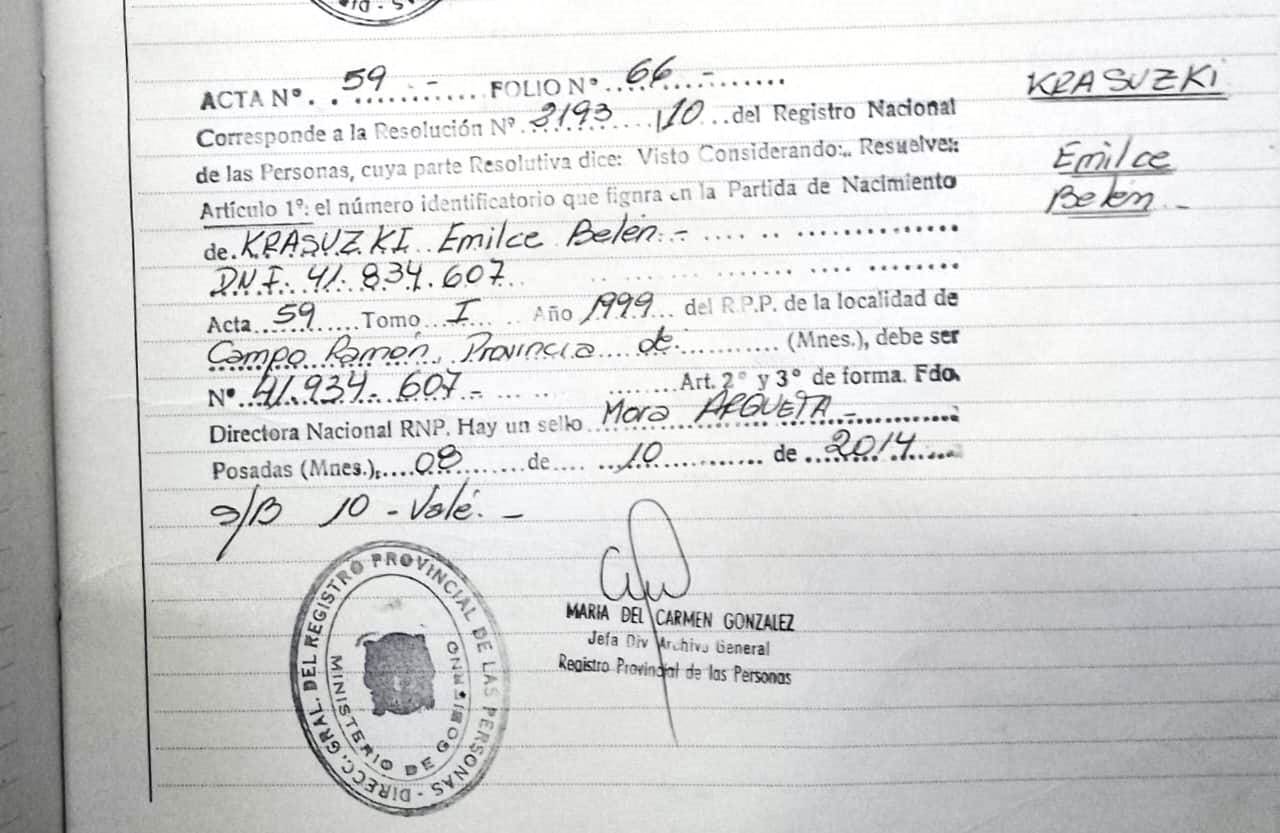 ACTA Nº. . 59 . - . . . . . . FOLIO Nº . 66 . . . - . . . . . .
Corresponde a la Resolución Nº . 3193 . . . /10 . . . del Registro Nacional
de las Personas, cuya parte Resolutiva dice: Visto Considerando:.. Resuelve:
Artículo 1º: el número identificatorio que fignra en la Partida de Nacimiento
de. KRASUZKI Emilce Belén. -
D.N.I. 41. 834. 607
Acta 59 Tomo I Año 1999 del R.P.P. de la localidad de
Campo Ramón, Provincia de (Mnes.), debe ser
Nº 41.934. 607 - Art. 2º y 3º de forma. Fdo.
Directora Nacional RNP. Hay un sello Mora ARGUETA -
Posadas (Mnes.), 08 de 10 de 2014
s/B 10 - Vale. -
KRASUZKI
Emilce
Belén -
DIRECC. GRAL. DEL REGISTRO PROVINCIAL DE LAS PERSONAS -
MINISTERIO DE GOBIERNO
MARIA DEL CARMEN GONZALEZ
Jefa Div Archivo General
Registro Provincial de las Personas